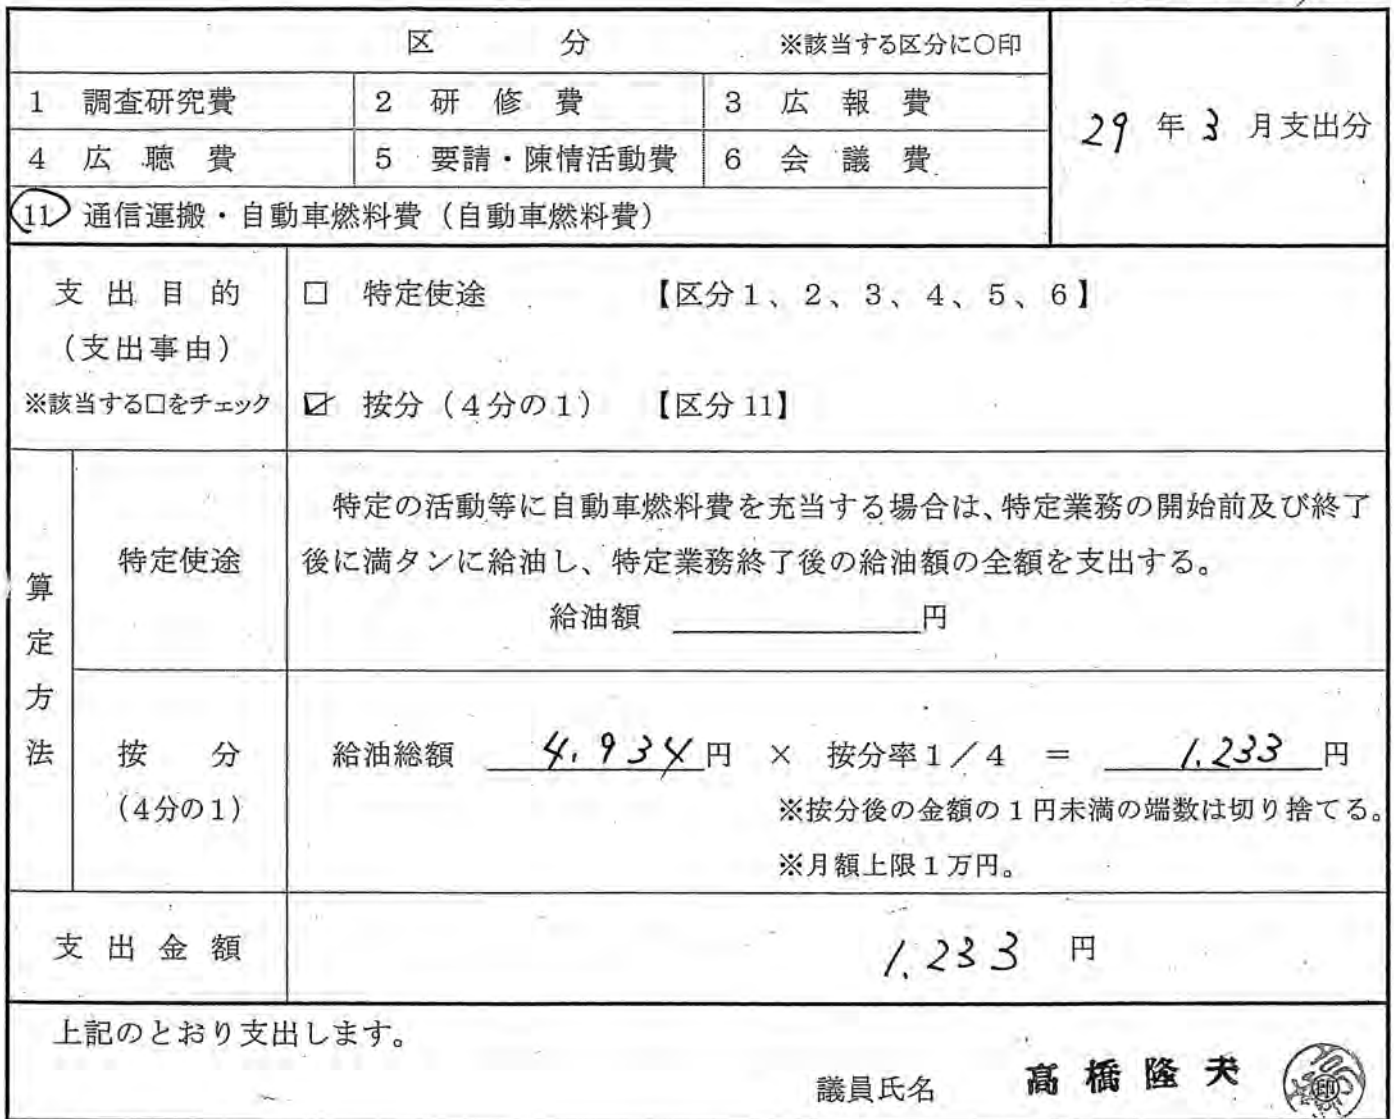 区 分 ※該当する区分に○印
1 調査研究費 2 研修費 3 広報費
29 年 3 月支出分
4 広聴費 5 要請・陳情活動費 6 会議費
11 通信運搬・自動車燃料費（自動車燃料費）
支出目的 □ 特定使途 【区分1、2、3、4、5、6】
（支出事由）
※該当する□をチェック ☑ 按分（4分の1） 【区分11】
算定方法
特定使途
特定の活動等に自動車燃料費を充当する場合は、特定業務の開始前及び終了
後に満タンに給油し、特定業務終了後の給油額の全額を支出する。
給油額 円
按分 給油総額 4,934円 × 按分率1／4 ＝ 1,233円
（4分の1） ※按分後の金額の1円未満の端数は切り捨てる。
※月額上限1万円。
支出金額 1,233 円
上記のとおり支出します。
議員氏名 髙橋隆夫 印